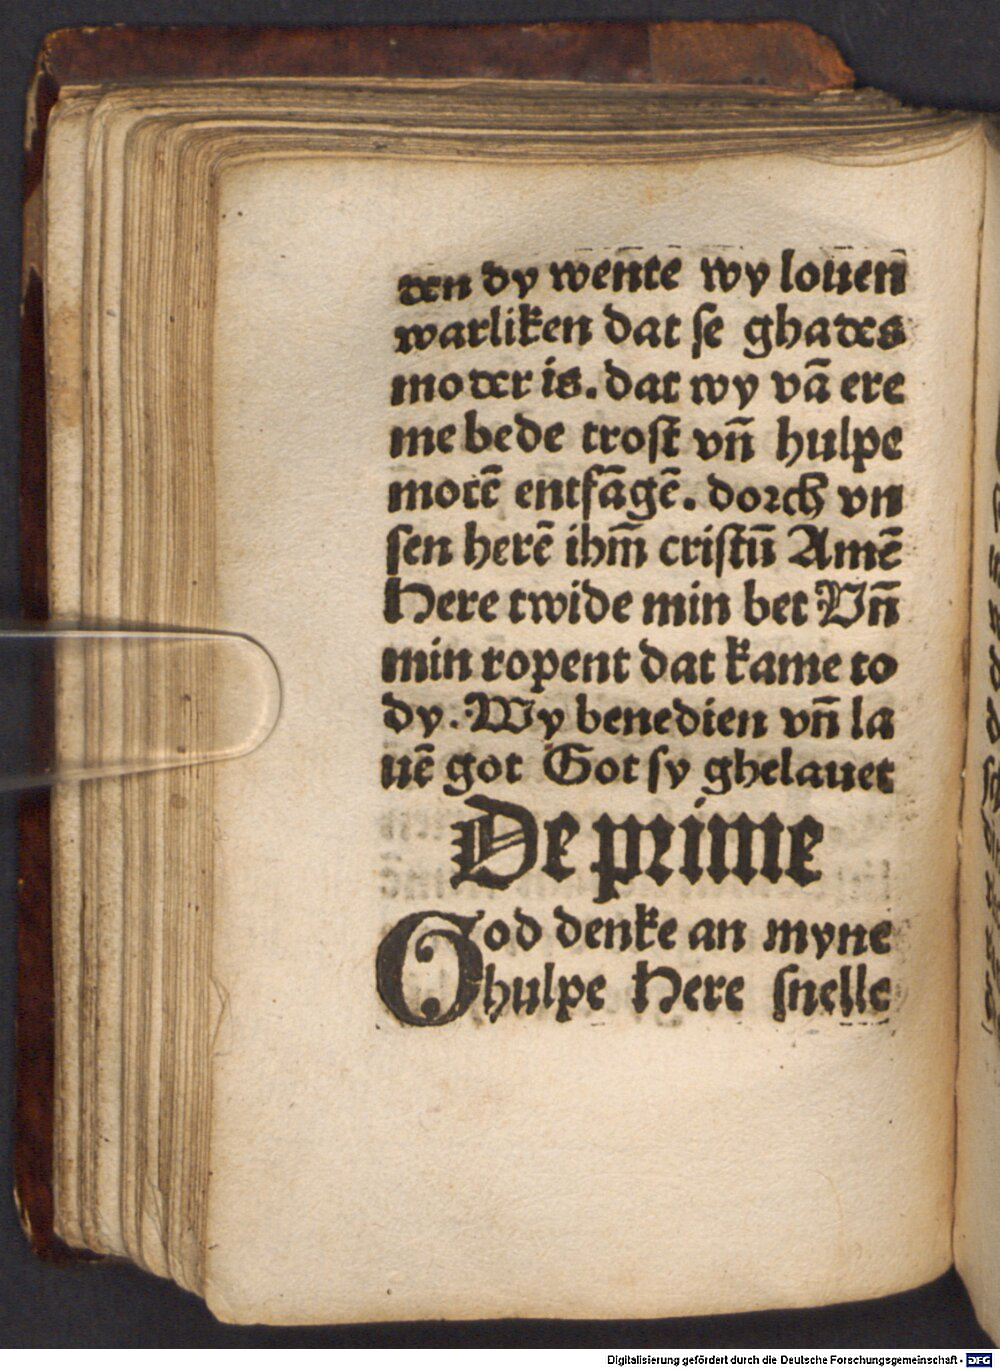 den dy wente wy louen
warliken dat se ghades
moder is. dat wy vā ere
me bede trost vn̄ hulpe
motē entfāgē. dorch vn
sen herē ihm̄ cristū Amē
Here twide min bet Vn̄
min ropent dat kame to
dy. Wy benedien vn̄ la
uē got Got sy ghelauet
De prime
God denke an myne
hulpe Here snelle
Digitalisierung gefördert durch die Deutsche Forschungsgemeinschaft - DFG